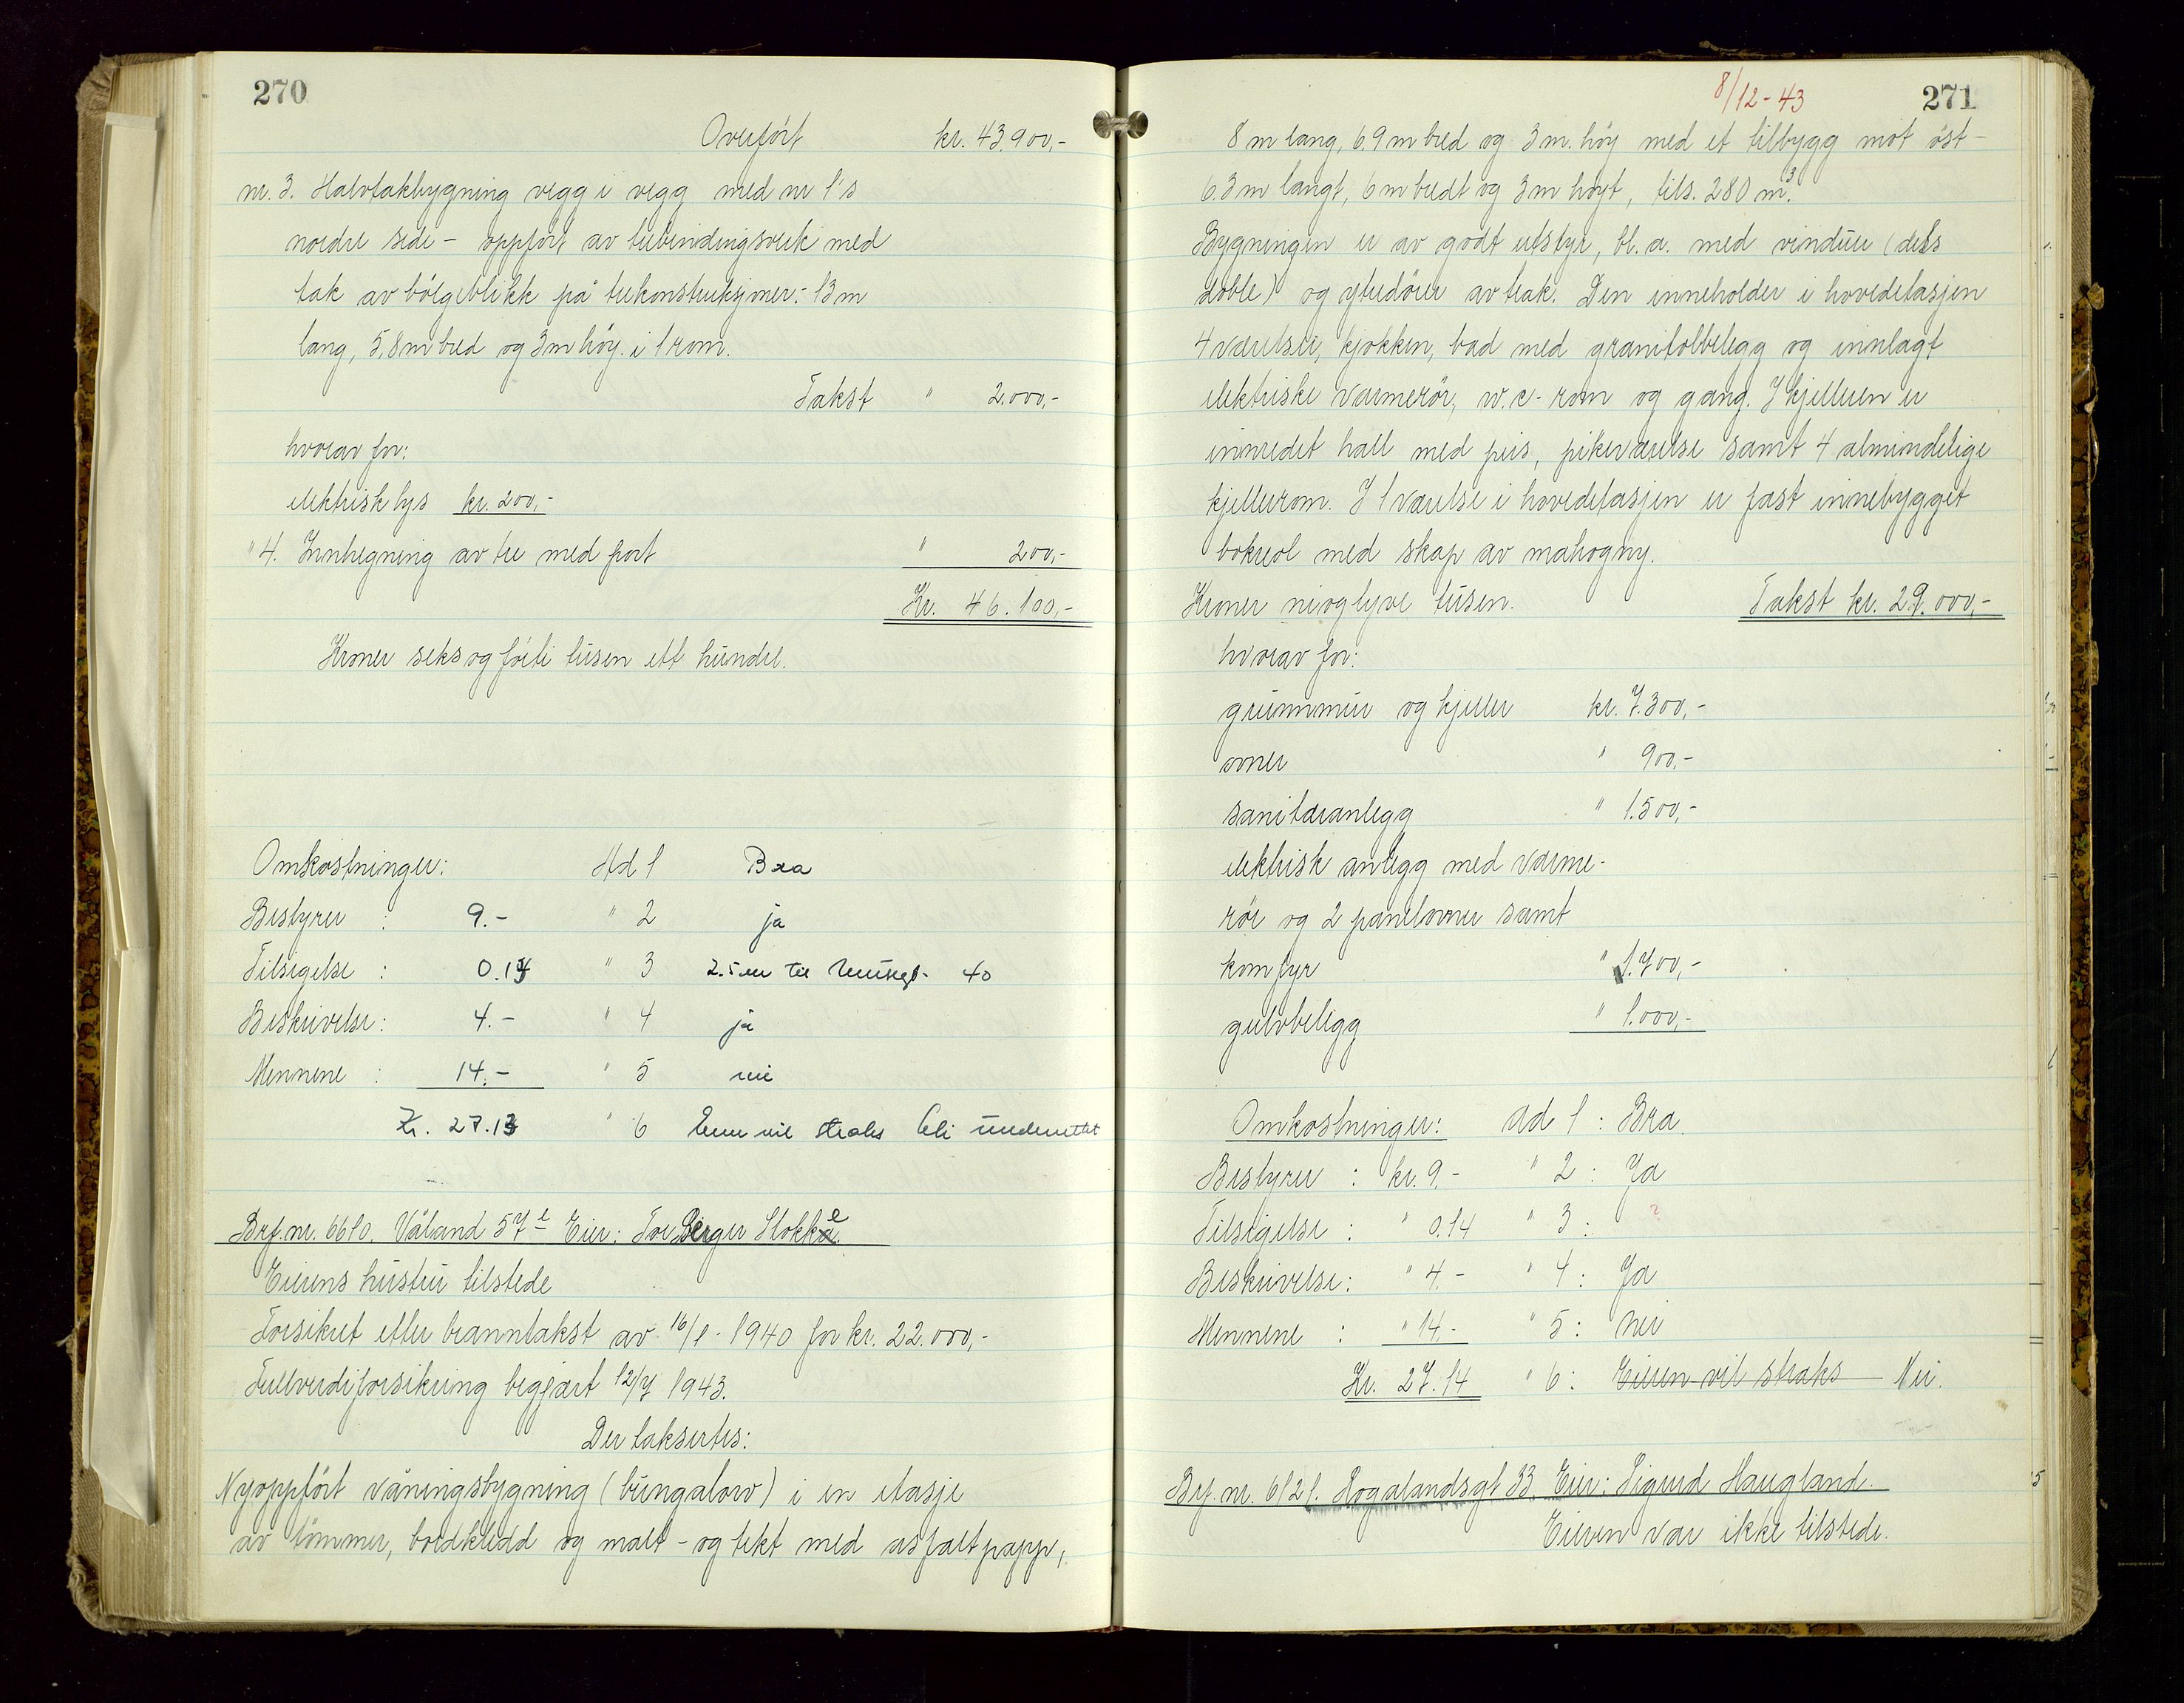 270
Overført kr. 43.900,-
nr. 3. Halvtakbygning vegg i vegg med nr 1's
nordre side - oppført av trebindingsverk med
tak av bølgeblikk på trekonstruksjoner: 13 m
lang, 5,8 m bred og 3 m høy i 1 rom.
Takst " 2.000,-
hvorav for:
elektrisk lys kr. 200,-
" 4. Innhegning av tre med port " 200,-
Kr. 46.100,-
Kroner seksogførti tusen ett hundre.
Omkostninger: Ad 1 Bra
Bestyrer : 9.- " 2 ja
Tilsigelse : 0.14 " 3 2.5 m til 40
Beskrivelse: 4.- " 4 ja
Mennene : 14.- " 5 nei
Kr. 27.13 " 6 vil straks bli underrettet
Brf. nr. 6610. Våland 57 e Eier: Tor Berger Stokke
Eierens hustru tilstede
Forsikret etter branntakst av 16/1 - 1940 for kr. 22.000,-
Fullverdiforsikring begjært 12/7 1943.
Der taksertes:
Nyoppført våningsbygning (bungalow) i en etasje
av tømmer, bordkledd og malt - og tekt med asfaltpapp,
8/12 - 43
271
8 m lang, 6.9 m bred og 3 m. høy med et tilbygg mot øst -
6.3 m langt, 6 m bredt og 3 m høyt, tils. 280 m³.
Bygningen er av godt utstyr, bl. a. med vinduer (dels
doble) og ytredører av teak. Den inneholder i hovedetasjen
4 værelser, kjøkken, bad med granitolbelegg og innlagt
elektriske varmerør, w.c.- rom og gang. I kjelleren er
innredet hall med peis, pikeværelse samt 4 almindelige
kjellerrom. I 1 værelse i hovedetasjen er fast innebygget
bokreol med skap av mahogny.
Kroner niogtyve tusen. Takst kr. 29.000,-
hvorav for:
grunnmur og kjeller kr. 7.300,-
ovner " 900,-
sanitæranlegg " 1.500,-
elektrisk anlegg med varme-
rør og 2 panelovner samt
komfyr " 1.700,-
gulvbelegg " 1.000,-
Omkostninger: Ad 1 : Bra.
Bestyrer : kr. 9.- " 2 : Ja
Tilsigelse : " 0.14 " 3 : ?
Beskrivelse: " 4.- " 4 : Ja
Mennene : " 14.- " 5 : Nei
Kr. 27.14 " 6 : Eieren vil straks Nei.
Brf. nr. 6121. Rogalandsgt 33. Eier: Sigurd Haugland.
Eieren var ikke tilstede.